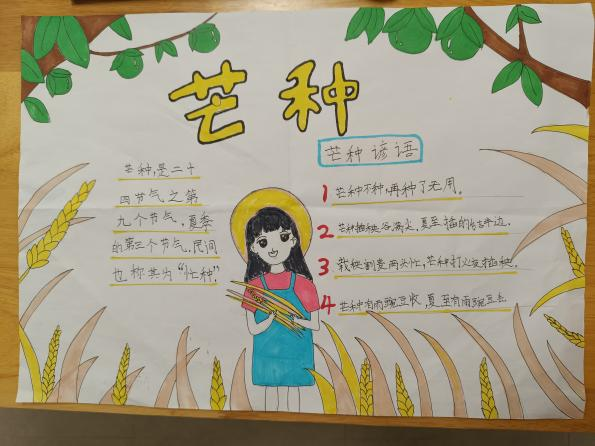 芒种
芒种,是二十
四节气之第
九个节气,夏季
的第三个节气,民间
也称其为“忙种”.
芒种谚语
1 芒种不种,再种了无用。
2 芒种插秧谷满尖,夏至插的结半边.
3 栽秧割麦两头忙,芒种打火夜插秧.
4 芒种有雨豌豆收,夏至有雨豌豆丢